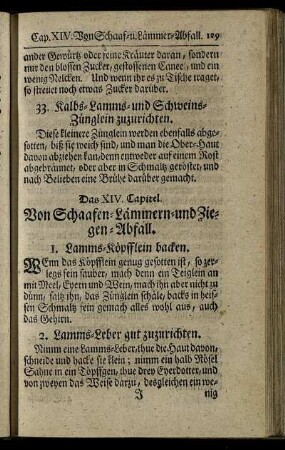 Cap. XIV. Von Schaaf- u. Lämmer-Abfall. 129
ander Gewürtz oder feine Kräuter daran, sondern
nur den blossen Zucker, gestossenen Canel, und ein
wenig Nelcken. Und wenn ihr es zu Tische traget,
so streuet noch etwas Zucker darüber.
33. Kalbs-Lamms- und Schweins-
Zünglein zuzurichten.
Diese kleinere Zünglein werden ebenfalls abge-
sotten, biß sie weich sind, und man die Ober-Haut
davon abziehen kan, denn entweder auf einem Rost
abgebräunet, oder aber in Schmaltz geröstet, und
nach Belieben eine Brühe darüber gemacht.
Das XIV. Capitel.
Von Schaafen-Lämmern-und Zie-
gen-Abfall.
1. Lamms-Köpfflein backen.
WEnn das Köpfflein genug gesotten ist, so zer-
legs fein sauber, mach denn ein Teiglein an
mit Meel, Eyern und Wein, mach ihn aber nicht zu
dünn, saltz ihn, das Zünglein schäle, backs in heis-
sen Schmaltz fein gemach alles wohl aus, auch
das Gehirn.
2. Lamms-Leber gut zuzurichten.
Nimm eine Lamms-Leber, thue die Haut davon,
schneide und hacke sie klein; nimm ein halb Nösel
Sahne in ein Töpffgen, thue drey Eyerdotter, und
von zweyen das Weise darzu, desgleichen ein we-
J nig